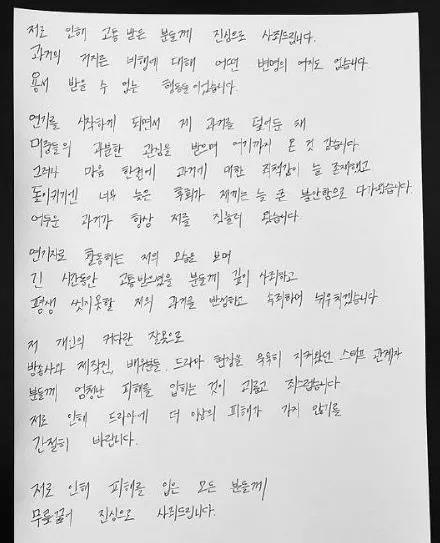 저로 인해 고통 받은 분들께 진심으로 사죄드립니다.
과거의 저지른 비행에 대해 어떤 변명의 여지도 없습니다
용서 받을 수 없는 행동들이었습니다.
연기를 시작하게 되면서 제 과거를 덮어둔 채
대중들의 과분한 관심을 받으며 여기까지 온 것 같습니다
그러나 마음 한켠에 과거에 대한 죄책감이 늘 존재했고
돌이키기엔 너무 늦은 후회가 저에게는 늘 큰 불안함으로 다가왔습니다
어두운 과거가 항상 저를 짓눌러 왔습니다.
연기자로 활동하는 저의 모습을 보며
긴 시간동안 고통받으셨을 분들께 깊이 사죄하고
평생 씻지못할 저의 과거를 반성하고 속죄하며 뉘우치겠습니다
저 개인의 커다란 잘못으로
방송사와 제작진, 배우분들, 드라마 현장을 묵묵히 지켜왔던 스태프 관계자
분들께 엄청난 피해를 입히는 것이 괴롭고 죄스럽습니다
저로 인해 드라마에 더 이상의 피해가 가지 않기를
간절히 바랍니다.
저로 인해 피해를 입은 모든 분들께
무릎꿇어 진심으로 사죄드립니다.